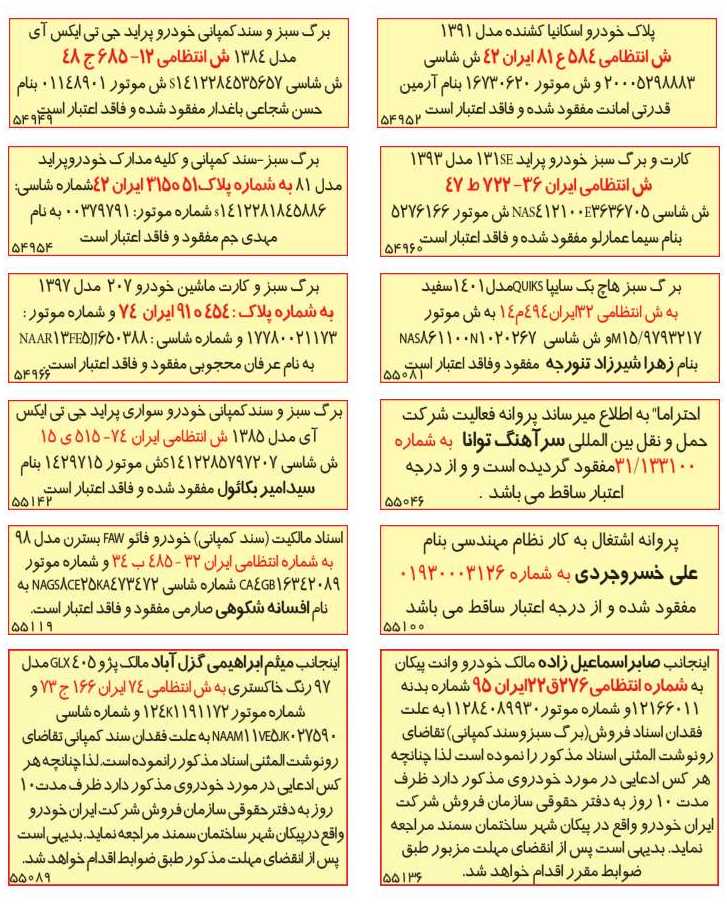 پلاک خودرو اسکانیا کشنده مدل ۱۳۹۱
ش انتظامی ۵۸۴ ع ۸۱ ایران ۴۲ ش شاسی
۲۰۰۰۵۲۹۸۸۸۳ و ش موتور ۱۶۷۳۰۶۲۰ بنام آرمین
قدرتی امانت مفقود شده و فاقد اعتبار است
۵۴۹۵۲
برگ سبز و سند کمپانی خودرو پراید جی تی ایکس آی
مدل ۱۳۸۴ ش انتظامی ۱۲- ۶۸۵ ج ۴۸
ش شاسی S۱۴۱۲۲۸۴۵۳۵۶۵۷ ش موتور ۰۱۱۴۸۹۰۱ بنام
حسن شجاعی باغدار مفقود شده و فاقد اعتبار است
۵۴۹۴۹
کارت و برگ سبز خودرو پراید ۱۳۱SE مدل ۱۳۹۳
ش انتظامی ایران ۳۶- ۷۲۲ ط ۴۷
ش شاسی NAS۴۱۲۱۰۰E۳۶۳۶۷۰۵ ش موتور ۵۲۷۶۱۶۶
بنام سیما عمارلو مفقود شده و فاقد اعتبار است
۵۴۹۶۰
برگ سبز-سند کمپانی و کلیه مدارک خودروپراید
مدل ۸۱ به شماره پلاک۵۱ ه۳۱۵ ایران ۴۲شماره شاسی:
s۱۴۱۲۲۸۱۸۴۵۸۸۶ شماره موتور: ۰۰۳۷۹۷۹۱ به نام
مهدی جم مفقود و فاقد اعتبار است
۵۴۹۵۴
برگ سبز هاچ بک سایپا QUIKSمدل۱۴۰۱سفید
به ش انتظامی ۳۲ایران۴۹۴م۱۴ به ش موتور
M۱۵/۹۷۹۳۲۱۷و ش شاسی NAS۸۶۱۱۰۰N۱۰۲۰۲۶۷
بنام زهرا شیرزاد تنورجه مفقود وفاقد اعتبار است
۵۵۰۸۱
برگ سبز و کارت ماشین خودرو ۲۰۷ مدل ۱۳۹۷
به شماره پلاک : ۴۵۴ ه ۹۱ ایران ۷۴ و شماره موتور :
۱۷۷۸۰۰۲۱۱۷۳ و شماره شاسی : NAAR۱۳FE۵JJ۶۵۰۳۸۸
به نام عرفان محجوبی مفقود و فاقد اعتبار است.
۵۴۹۶۶
احتراما" به اطلاع میرساند پروانه فعالیت شرکت
حمل و نقل بین المللی سرآهنگ توانا به شماره
۳۱/۱۳۳۱۰۰مفقود گردیده است و و از درجه
اعتبار ساقط می باشد .
۵۵۰۴۶
برگ سبز و سند کمپانی خودرو سواری پراید جی تی ایکس
آی مدل ۱۳۸۵ ش انتظامی ایران ۷۴- ۵۱۵ ی ۱۵
ش شاسی S۱۴۱۲۲۸۵۷۹۷۲۰۷ش موتور ۱۴۲۹۷۱۵ بنام
سیدامیر بکائول مفقود شده و فاقد اعتبار است
۵۵۱۴۲
پروانه اشتغال به کار نظام مهندسی بنام
علی خسروجردی به شماره ۰۱۹۳۰۰۰۳۱۲۶
مفقود شده و از درجه اعتبار ساقط می باشد
۵۵۱۰۰
اسناد مالکیت (سند کمپانی) خودرو فائو FAW بسترن مدل ۹۸
به شماره انتظامی ایران ۳۲ - ۴۸۵ ب ۳۴ و شماره موتور
CA۴GB۱۶۳۴۲۰۸۹ شماره شاسی NAGS۸CE۲۵KA۴۷۳۴۷۲ به
نام افسانه شکوهی صارمی مفقود و فاقد اعتبار است.
۵۵۱۱۹
اینجانب صابراسماعیل زاده مالک خودرو وانت پیکان
به شماره انتظامی۲۷۶ق۲۲ایران ۹۵ شماره بدنه
۱۲۱۶۶۰۱۱و شماره موتور۱۱۲۸۴۰۸۹۹۳۰به علت
فقدان اسناد فروش(برگ سبزوسندکمپانی) تقاضای
رونوشت المثنی اسناد مذکور را نموده است لذا چنانچه
هر کس ادعایی در مورد خودروی مذکور دارد ظرف
مدت ۱۰ روز به دفتر حقوقی سازمان فروش شرکت
ایران خودرو واقع در پیکان شهر ساختمان سمند مراجعه
نماید. بدیهی است پس از انقضای مهلت مزبور طبق
ضوابط مقرر اقدام خواهد شد.
۵۵۱۳۶
اینجانب میثم ابراهیمی گزل آباد مالک پژو ۴۰۵ GLX مدل
۹۷ رنگ خاکستری به ش انتظامی ۷۴ ایران ۱۶۶ ج ۷۳ و
شماره موتور ۱۲۴K۱۱۹۱۱۷۲ و شماره شاسی
NAAM۱۱VE۵JK۰۲۷۵۹۰ به علت فقدان سند کمپانی تقاضای
رونوشت المثنی اسناد مذکور رانموده است.لذا چنانچه هر
کس ادعایی در مورد خودروی مذکور دارد ظرف مدت۱۰
روز به دفتر حقوقی سازمان فروش شرکت ایران خودرو
واقع درپیکان شهر ساختمان سمند مراجعه نماید. بدیهی است
پس از انقضای مهلت مذکور طبق ضوابط اقدام خواهد شد.
۵۵۰۸۹